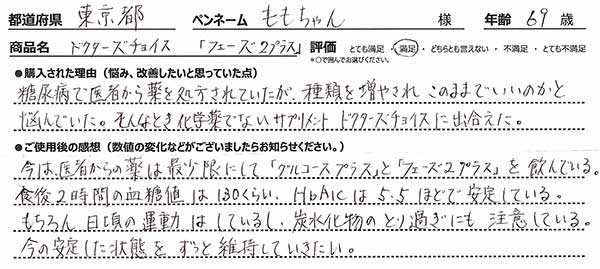 都道府県 東京都 ペンネーム ももちゃん 様 年齢 69 歳
商品名 ドクターズチョイス 「フェーズ2プラス」 評価 とても満足 ・ 満足 ・ どちらとも言えない ・ 不満足 ・ とても不満足
*○で囲んでお選びください。
●購入された理由（悩み、改善したいと思っていた点）
糖尿病で医者から薬を処方されていたが、種類を増やされ このままでいいのかと
悩んでいた。そんなとき化学薬でないサプリメント ドクターズチョイスに出会えた。
●ご使用後の感想（数値の変化などがございましたらお知らせください。）
今は、医者からの薬は最少限にして「グルコースプラス」と「フェーズ2プラス」を飲んでいる。
食後2時間の血糖値は130くらい、HbA1cは5.5ほどで安定している。
もちろん 日頃の運動はしているし、炭水化物のとり過ぎにも注意している。
今の安定した状態をずっと維持していきたい。